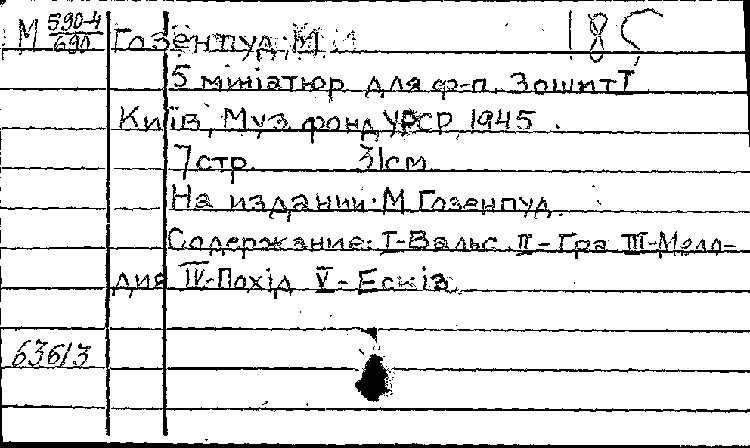 М 590-4/690 Гозенпуд М И 185
5 мініатюр для ф-п. Зошит I
Київ, Муз фонд УРСР, 1945.
7 стр. 31см.
На издании: М Гозенпуд.
Содержание: I-Вальс. II-Гра III-Мело-
дия IV-Похід V-Ескіз.
63613